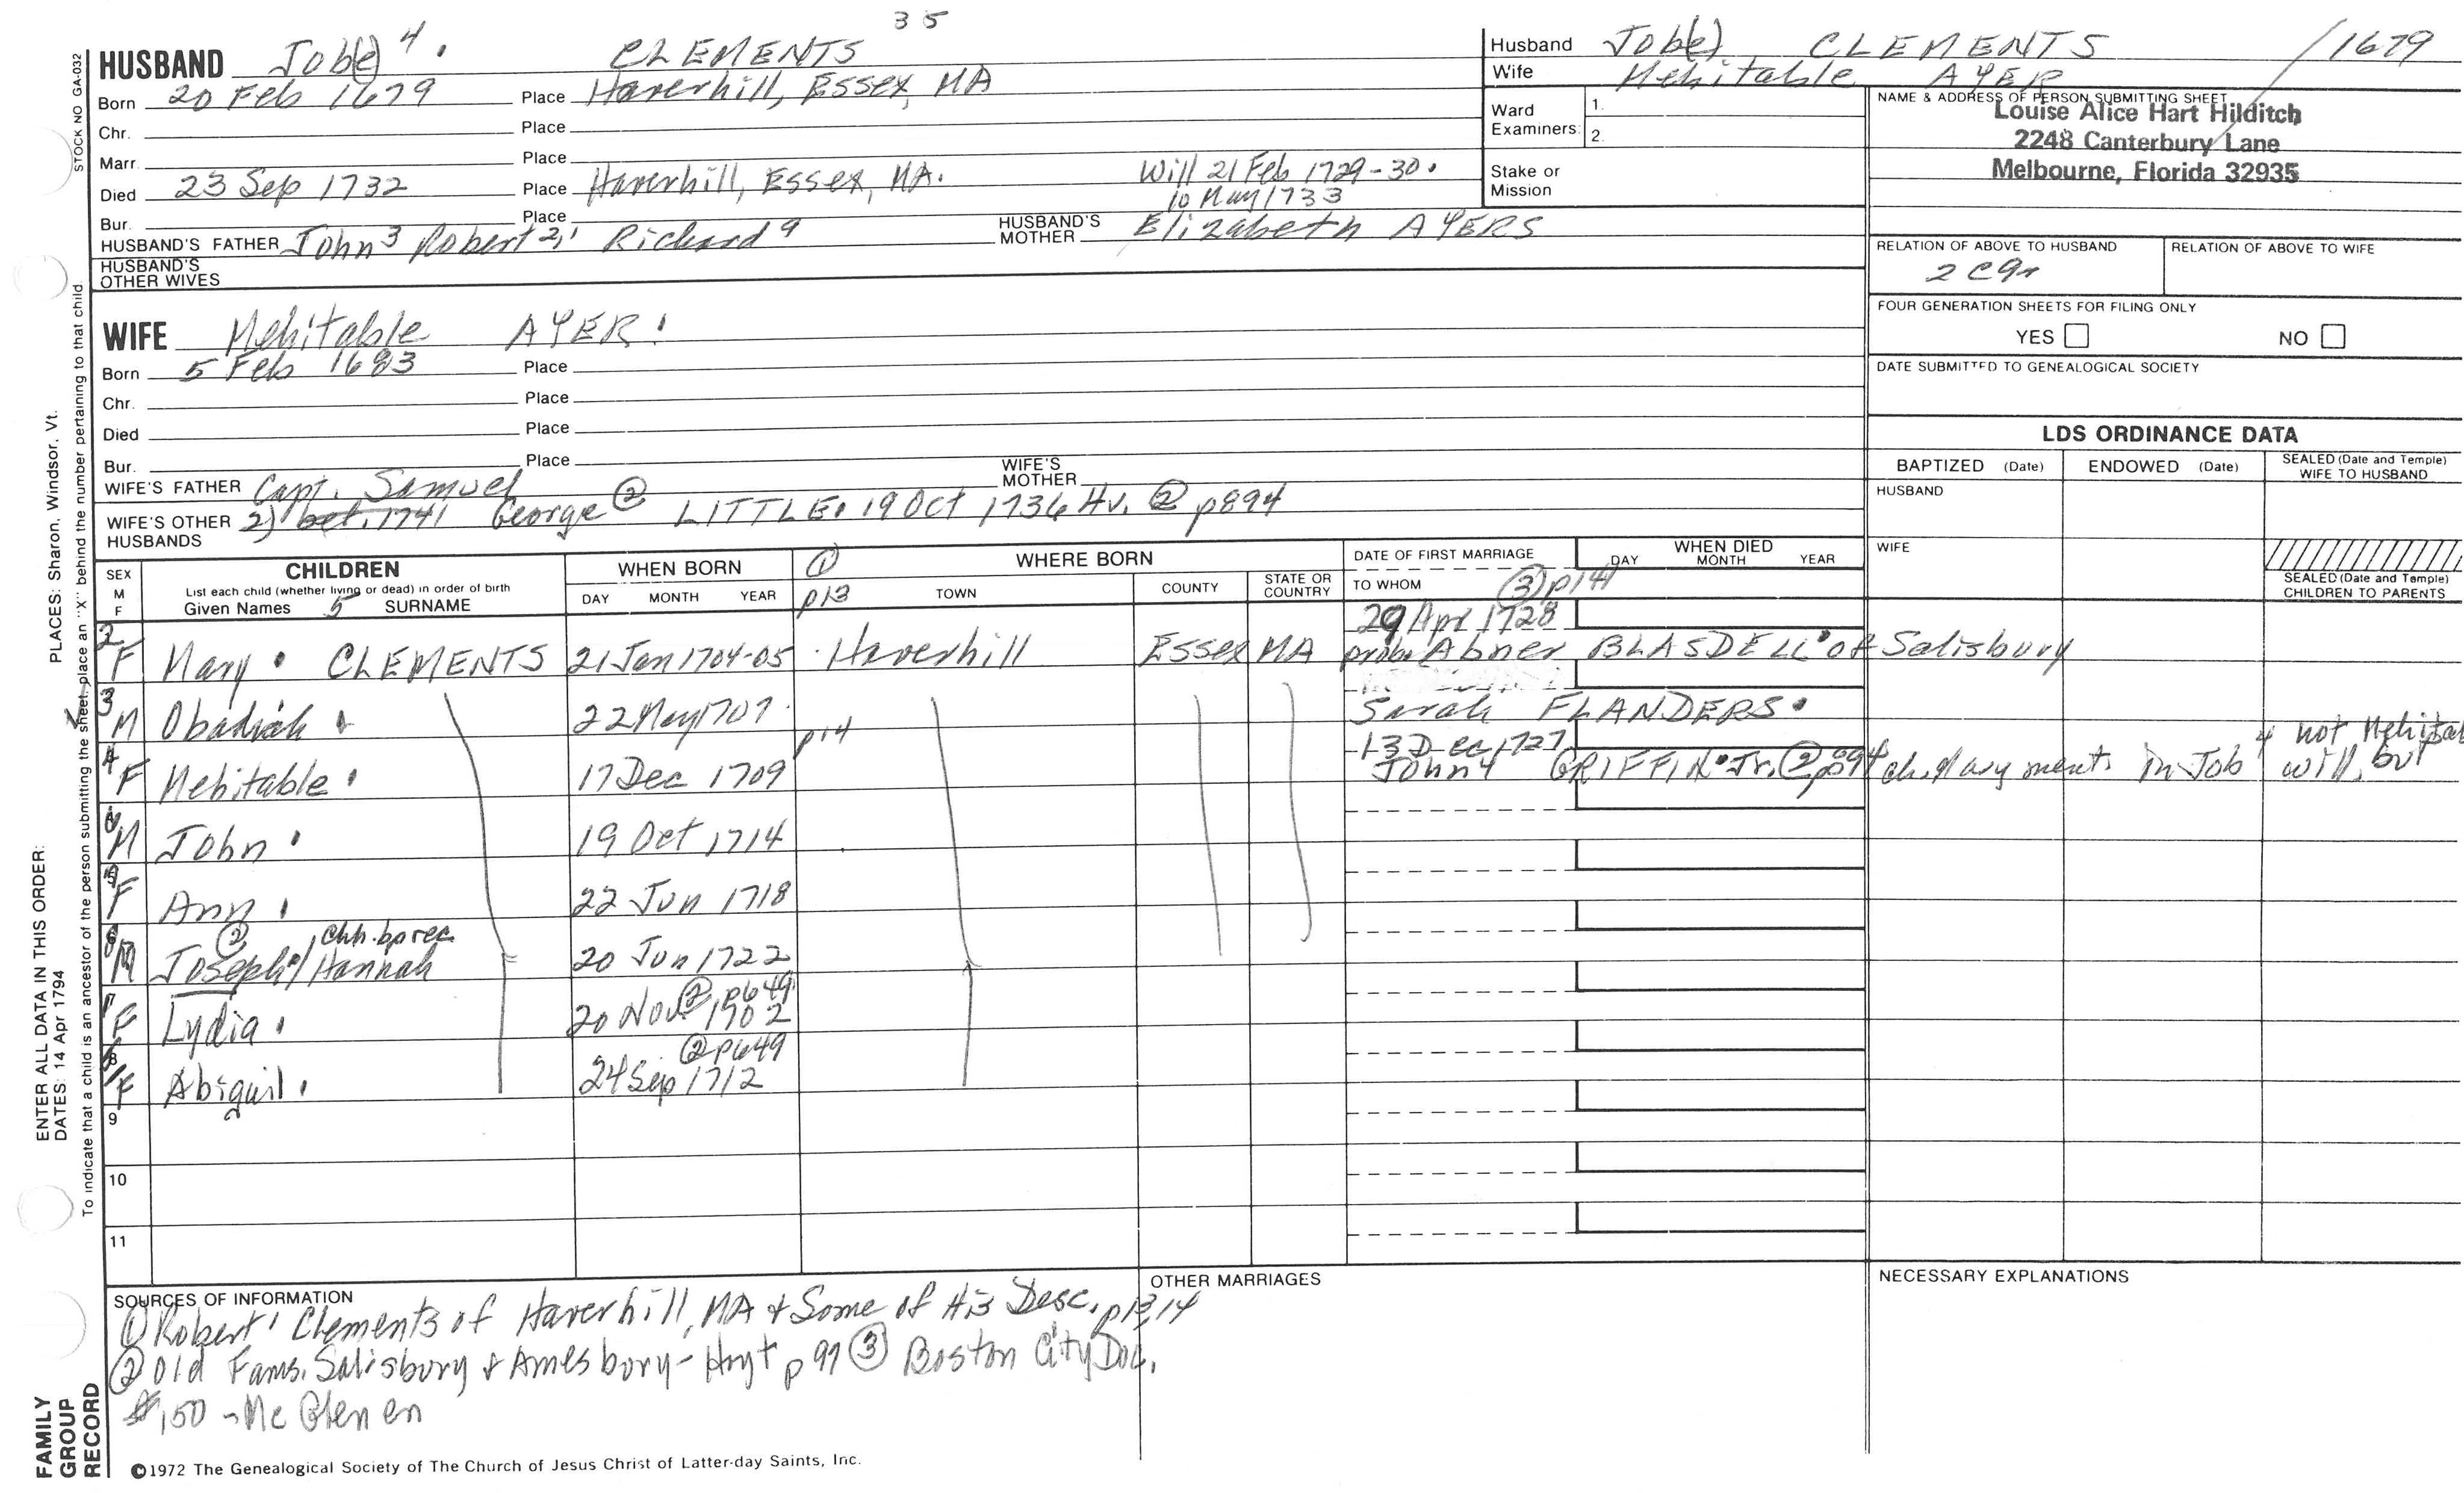 35
HUSBAND Job(e) 4. CLEMENTS
Born 20 Feb 1679 Place Haverhill, Essex, MA
Chr. Place
Marr. Place
Died 23 Sep 1732 Place Haverhill, Essex, MA. Will 21 Feb 1729-30.
10 May 1733
Bur. Place
HUSBAND'S FATHER John3 Robert2,1 Richard a HUSBAND'S MOTHER Elizabeth AYERS
HUSBAND'S OTHER WIVES
Husband Job(e) CLEMENTS / 1679
Wife Mehitable AYER
Ward Examiners: 1.
2.
Stake or Mission
NAME & ADDRESS OF PERSON SUBMITTING SHEET
Louise Alice Hart Hilditch
2248 Canterbury Lane
Melbourne, Florida 32935
RELATION OF ABOVE TO HUSBAND RELATION OF ABOVE TO WIFE
2 C 9r
FOUR GENERATION SHEETS FOR FILING ONLY
YES NO
DATE SUBMITTED TO GENEALOGICAL SOCIETY
WIFE Mehitable AYER.
Born 5 Feb 1683 Place
Chr. Place
Died Place
Bur. Place
WIFE'S FATHER Capt. Samuel WIFE'S MOTHER
WIFE'S OTHER HUSBANDS 2) bef. 1741 George ② LITTLE. 19 Oct 1736 Hv. ② p894
LDS ORDINANCE DATA
BAPTIZED (Date) ENDOWED (Date) SEALED (Date and Temple) WIFE TO HUSBAND
HUSBAND
WIFE
SEALED (Date and Temple) CHILDREN TO PARENTS
SEX M F
CHILDREN
List each child (whether living or dead) in order of birth
Given Names 5 SURNAME
WHEN BORN
DAY MONTH YEAR
① p13
WHERE BORN
TOWN COUNTY STATE OR COUNTRY
DATE OF FIRST MARRIAGE
TO WHOM ③ p141
WHEN DIED
DAY MONTH YEAR
29 Apr 1728
2 F Mary. CLEMENTS 21 Jan 1704-05 Haverhill Essex MA prob. Abner BLASDELL of Salisbury
3 M Obadiah. 22 May 1707. Sarah FLANDERS.
p14 13 Dec 1727
4 F Mehitable. 17 Dec 1709 John4 GRIFFIN. Jr. ② p894 ch. Mary ment. in Job4 will, but not Mehitab
M John. 19 Oct 1714
5 F Ann. 22 Jun 1718
② chh. bp rec
6 M Joseph./Hannah 20 Jun 1722
② p649
7 F Lydia. 20 Nov 1702
② p649
8 F Abigail. 24 Sep 1712
9
10
11
SOURCES OF INFORMATION
① Robert1 Clements of Haverhill, MA & Some of His Desc. p13,14
② Old Fams. Salisbury & Amesbury - Hoyt p 97 ③ Boston City Doc.
#150 - McGlenen
OTHER MARRIAGES
NECESSARY EXPLANATIONS
©1972 The Genealogical Society of The Church of Jesus Christ of Latter-day Saints, Inc.
STOCK NO GA-032
PLACES: Sharon, Windsor, Vt.
To indicate that a child is an ancestor of the person submitting the sheet, place an "X" behind the number pertaining to that child.
ENTER ALL DATA IN THIS ORDER:
DATES: 14 Apr 1794
FAMILY GROUP RECORD